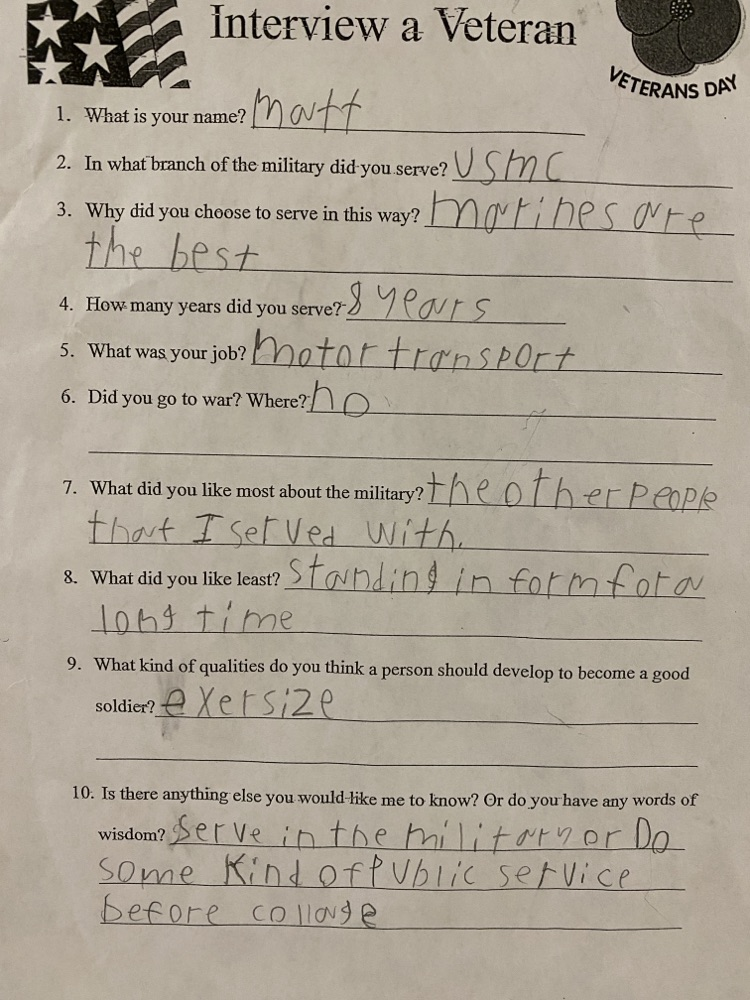 Interview a Veteran
VETERANS DAY
1. What is your name? Matt
2. In what branch of the military did you serve? USMC
3. Why did you choose to serve in this way? Marines are
the best
4. How many years did you serve? 8 years
5. What was your job? Motor transport
6. Did you go to war? Where? no
7. What did you like most about the military? the other people
that I served with.
8. What did you like least? Standing in form for a
long time
9. What kind of qualities do you think a person should develop to become a good
soldier? exersize
10. Is there anything else you would like me to know? Or do you have any words of
wisdom? Serve in the military or Do
some Kind of Public service
before collage